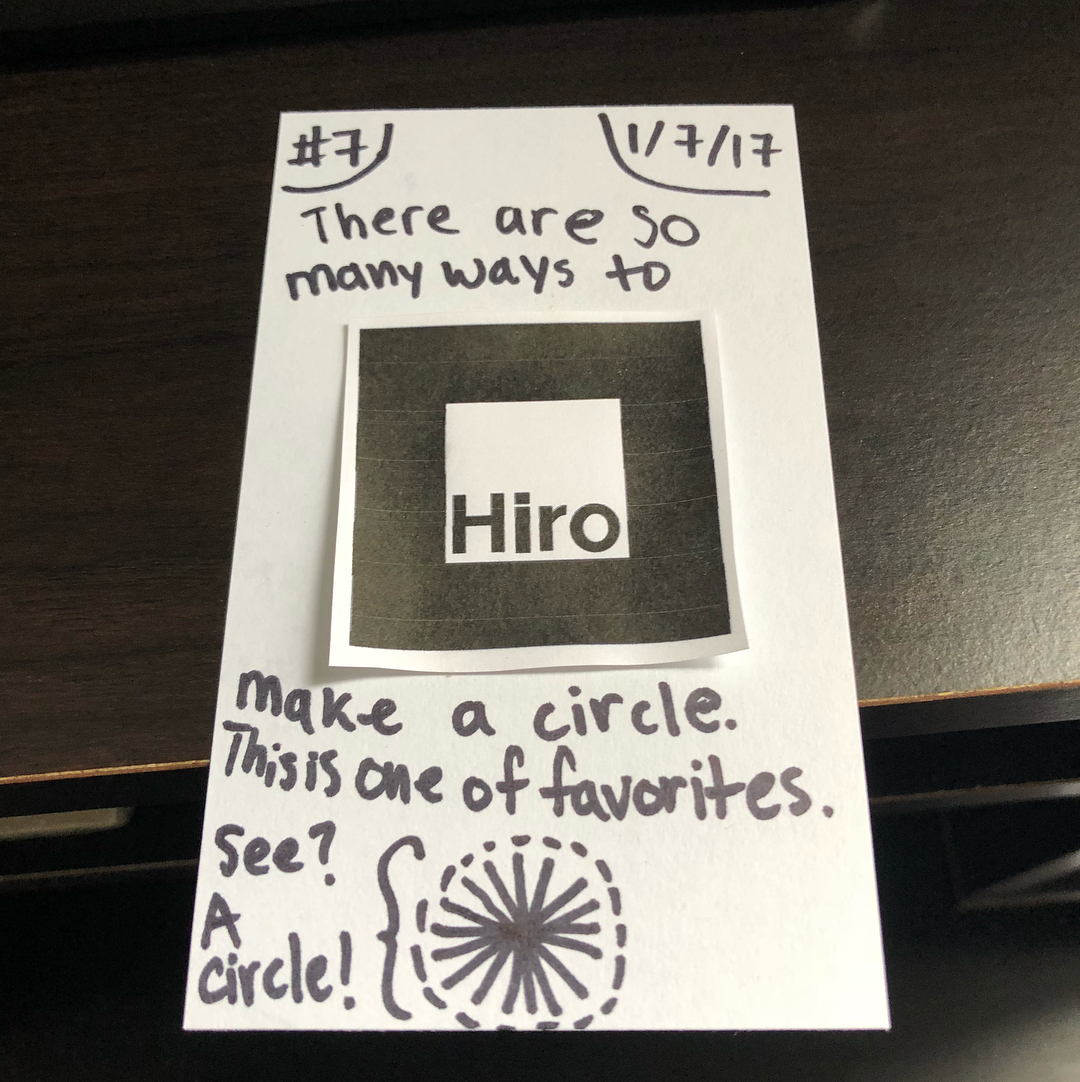 #7
1/7/17
There are so
many ways to
Hiro
make a circle.
This is one of favorites.
See?
A
circle!